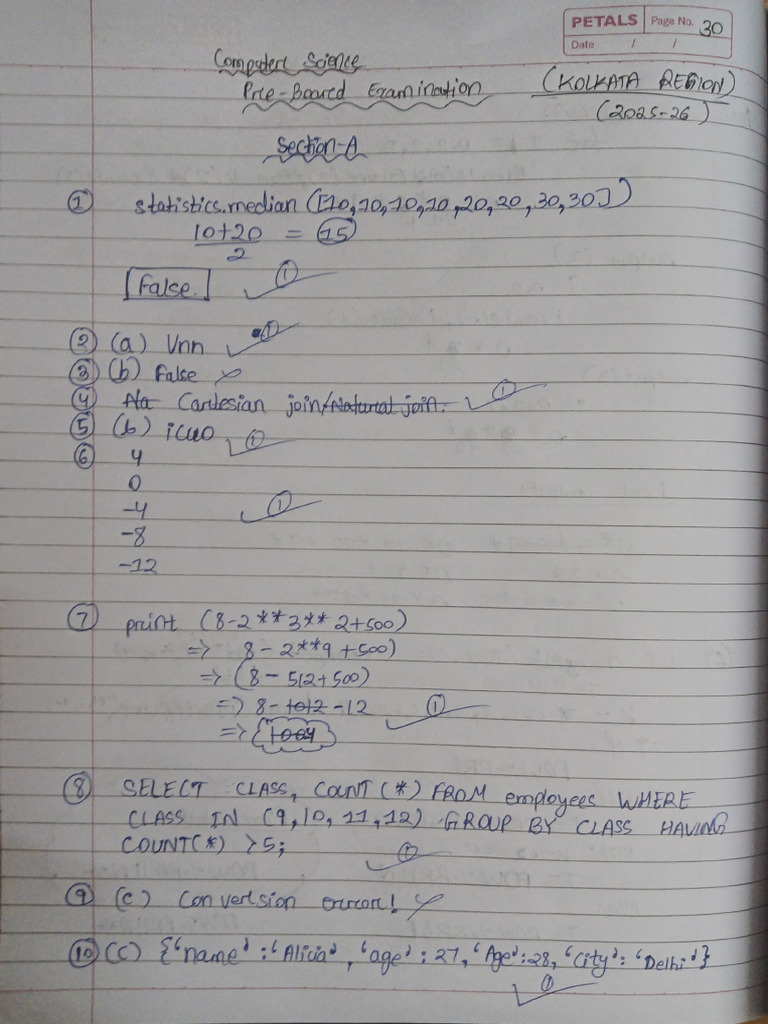 PETALS Page No. 30
Date / /
Computer Science
Pre-Board Examination (KOLKATA REGION)
(2025-26)
Section-A
① statistics.median ([10,10,10,10,20,20,30,30])
10+20 / 2 = 15
[False.] ①
② (a) Vnn ①
③ (b) False ✗
④ Na Cartesian join/Natural join. ①
⑤ (b) icuo ①
⑥ 4
0
-4 ①
-8
-12
⑦ print (8-2**3**2+500)
=> 8-2**9+500)
=> (8-512+500)
=> 8-1012 -12 ①
=> 1004
⑧ SELECT CLASS, COUNT(*) FROM employees WHERE
CLASS IN (9,10,11,12) GROUP BY CLASS HAVING
COUNT(*) >5;
①
⑨ (c) Conversion error! ✗
⑩ (C) {'name':'Alicia', 'age':27, 'Age':28, 'City':'Delhi'}
①